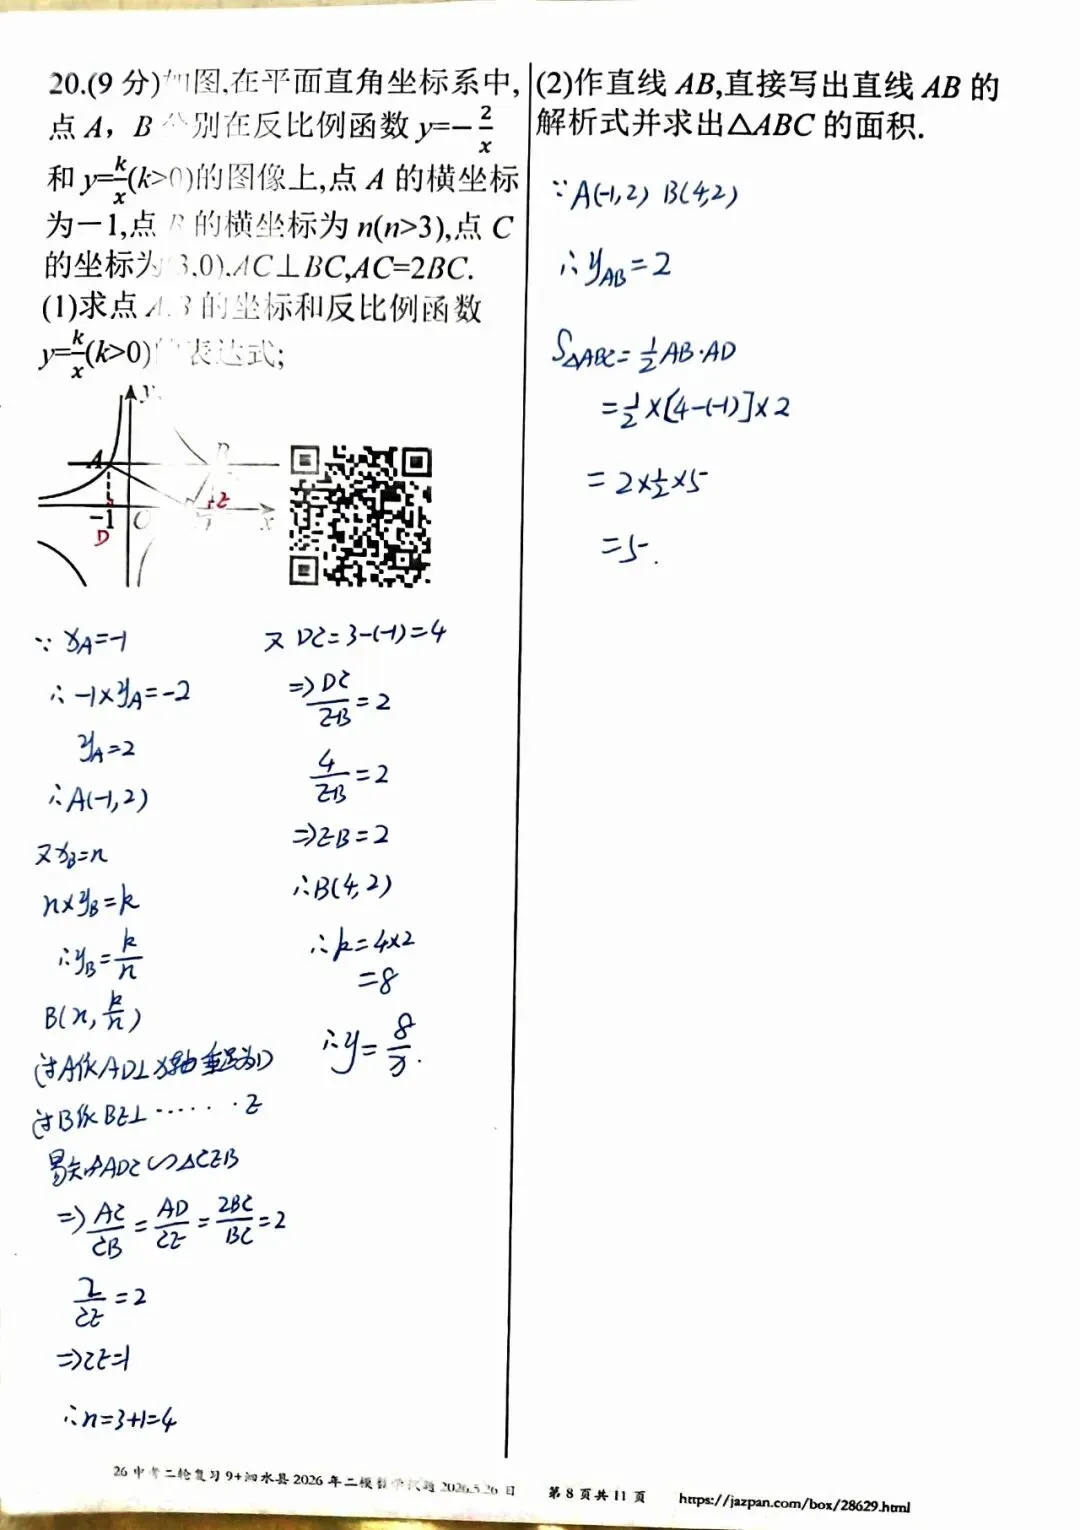 20.(9 分)如图,在平面直角坐标系中,
点 A，B 分别在反比例函数 y=-2/x
和 y=k/x(k>0)的图像上,点 A 的横坐标
为－1,点 B 的横坐标为 n(n>3),点 C
的坐标为(3,0),AC⊥BC,AC=2BC.
(1)求点 A,B 的坐标和反比例函数
y=k/x(k>0)的表达式;
y
A B
E
-1 O x
D
∵ xA=-1
∴ -1×yA=-2
yA=2
∴A(-1,2)
又xB=n
n×yB=k
∴yB=k/n
B(n,k/n)
过A作AD⊥x轴垂足为D
过B作BE⊥ ······· E
易知△ADC∽△CEB
=>AC/CB=AD/CE=2BC/BC=2
2/CE=2
=>CE=1
∴n=3+1=4
又 DC=3-(-1)=4
=>DC/EB=2
4/EB=2
=>EB=2
∴B(4,2)
∴k=4×2
=8
∴y=8/x.
(2)作直线 AB,直接写出直线 AB 的
解析式并求出△ABC 的面积.
∵A(-1,2) B(4,2)
∴yAB=2
S△ABC=1/2AB·AD
=1/2×[4-(-1)]×2
=2×1/2×5
=5.
26 中考二轮复习 9+泗水县 2026 年二模数学试题 2026.5.26 日 第 8 页共 11 页 https://jazpan.com/box/28629.html